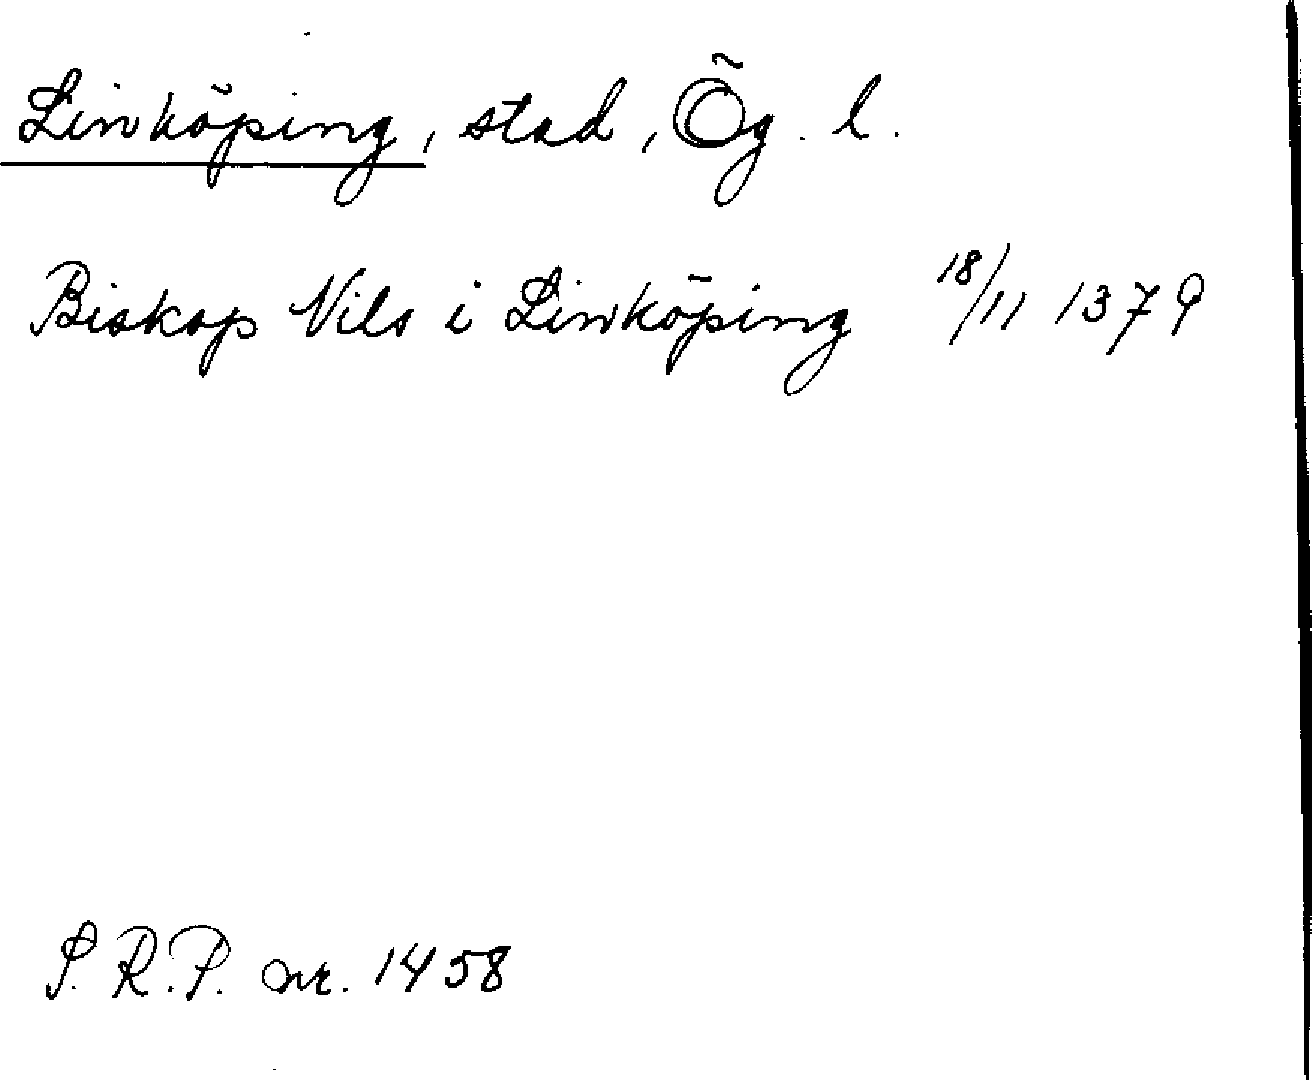 Linköping, stad, Ög. l.
Biskop Nils i Linköping 18/11 1379
S.R.P. nr. 1458